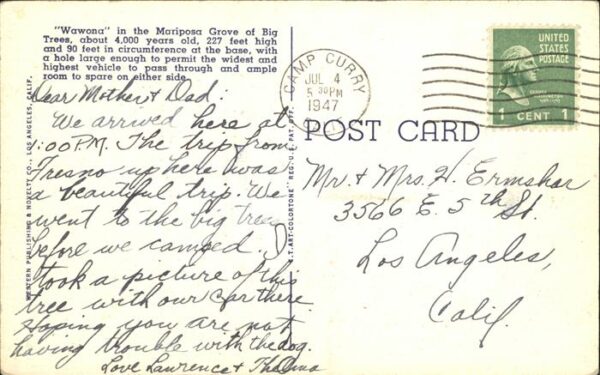 "Wawona" in the Mariposa Grove of Big
Trees, about 4,000 years old, 227 feet high
and 90 feet in circumference at the base, with
a hole large enough to permit the widest and
highest vehicle to pass through and ample
room to spare on either side.
Dear Mother & Dad:
We arrived here at
1:00 P.M. The trip from
Fresno up here was
a beautiful trip. We
went to the big trees
before we camped. I
took a picture of this
tree with our car there
Hoping you are not
having trouble with the dog.
Love Lawrence & Thelma
WESTERN PUBLISHING & NOVELTY CO., LOS ANGELES, CALIF.
C.T. ART-COLORTONE" REG. U.S. PAT. OFF.
CAMP CURRY
JUL 4
5 30PM
1947
UNITED
STATES
POSTAGE
1 CENT 1
POST CARD
Mr. & Mrs. H. Ermshar
3566 E. 5th St.
Los Angeles,
Calif.